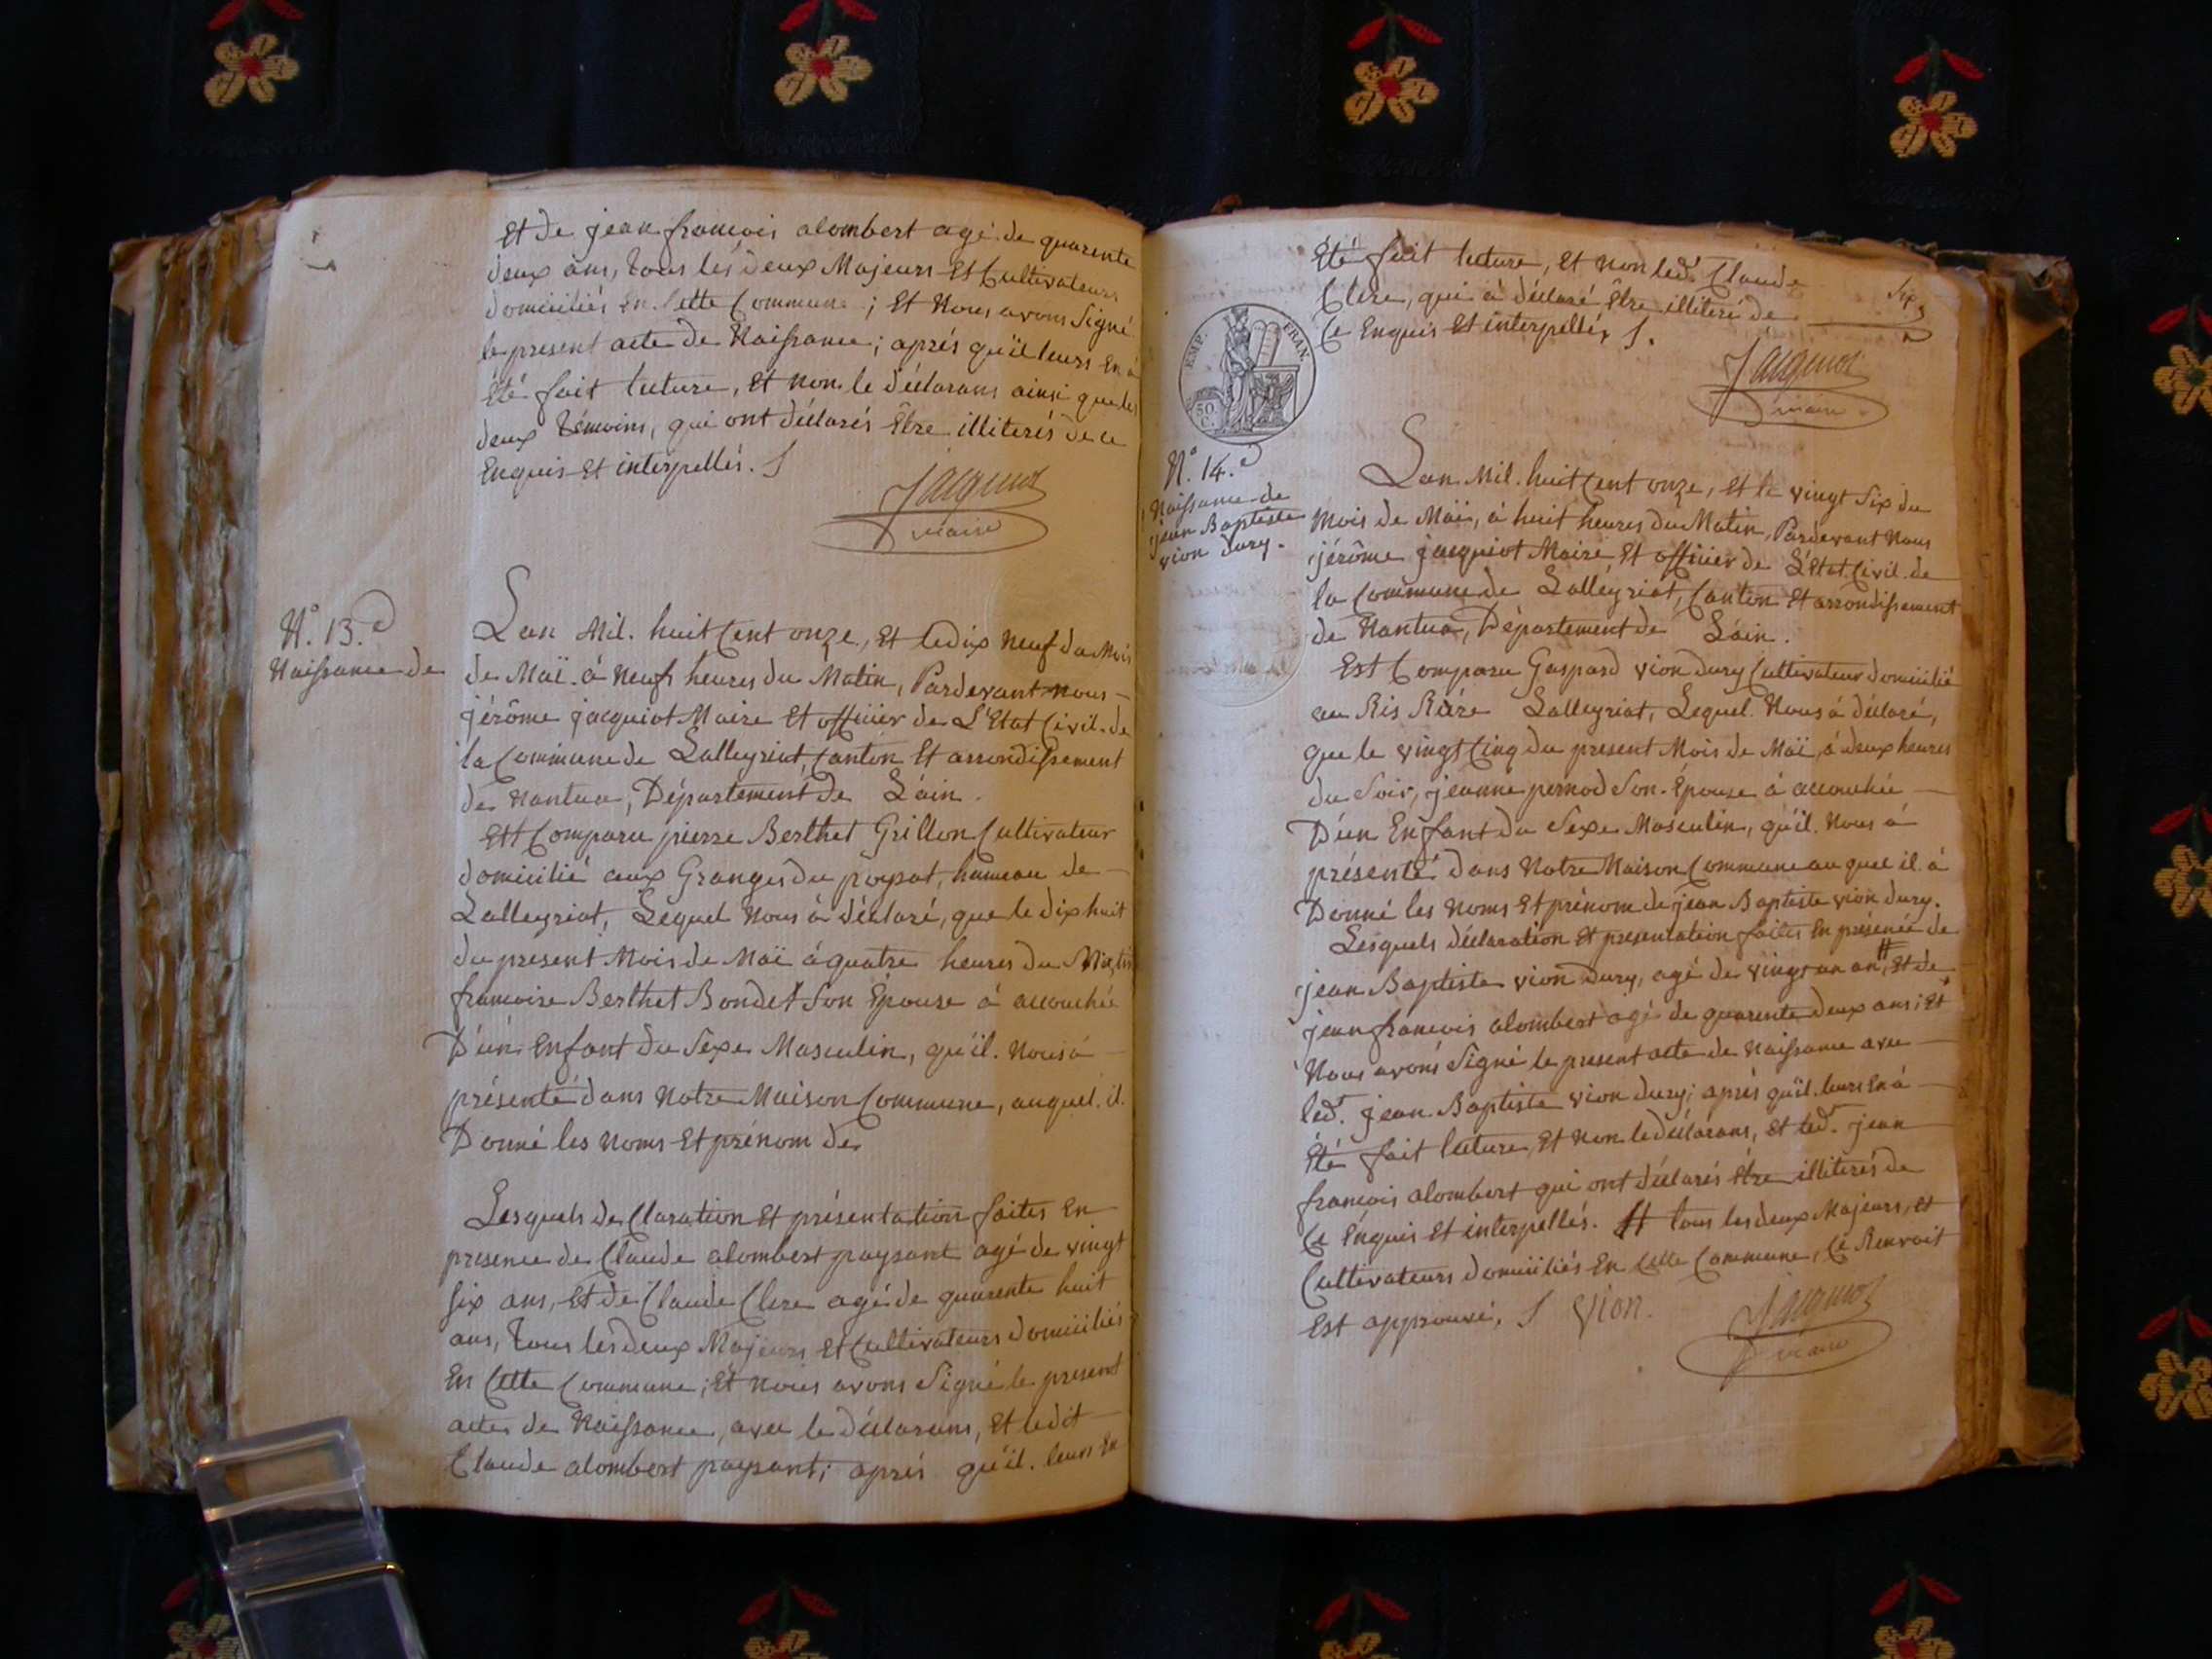 Et de jean francois alombert agé de quarente
deux ans, tous les deux Majeurs Et Cultivateurs
domiciliés En Cette Commune ; Et Nous avons Signé
le present acte de Naissance ; aprés qu'il leurs En a
Été fait lecture, Et non le déclarans ainsi que les
deux témoins, qui ont déclarés Être illiterés de ce
Enquis Et interpellés.
Jacquiot
maire
N.° 13.e
Naissance de
Lan Mil. huit Cent onze, Et le dix neuf du Mois
de Maï à Neufs heures du Matin, Pardevant nous
jérôme jacquiot Maire Et officier de L'Etat Civil de
la Commune de Lalleyriat, Canton Et arrondissement
de Nantua, Département de L'ain.
Est Comparu pierre Berthet Grillon Cultivateur
domicilié aux Granges du poyzat, hameau de
Lalleyriat, Lequel Nous à déclaré, que le dix huit
du présent Mois de Maï à quatre heures du Matin
francoise Berthet Bondet Son Épouse à accouchée
D'ún Enfant du Sexe Masculin, qu'il. Nous à
présenté dans Notre Maison Commune, auquel. il.
Donné les Noms Et prénom de
Lesquels de Claration Et présentation faites En
presence de Claude alombert paysant agé de vingt
six ans, Et de Claude Clere agé de quarente huit
ans, tous les deux Majeurs Et Cultivateurs domiciliés
En Cette Commune ; Et nous avons Signé le present
acte de Naissance, avec le déclarans, Et ledit
Claude alombert paysant ; aprés qu'il. leurs En
Été fait lecture, Et non led.t Claude
Clere, qui à déclaré Être illiteré de
Ce Enquis Et interpellé,
Six
Jacquiot
maire
EMP. FRAN.
50 C.
N.° 14.e
Naissance de
jean Baptiste
vion dury.
Lan Mil. huit Cent onze, Et le vingt Six du
Mois de Maï, à huit heures du Matin, Pardevant Nous
jérôme jacquiot Maire Et officier de L'État Civil de
la Commune de Lalleyriat, Canton Et arrondissement
de Nantua, Département de L'ain.
Est Comparu Gaspard vion dury Cultivateur domicilié
au Lalleyriat, Lequel. Nous à déclaré,
que le vingt Cinq du present Mois de Maï à deux heures
du Soir, jeanne pernod Son Épouse à accouchée
D'ún Enfant du Sexe Masculin, qu'il. Nous à
présenté dans Notre Maison Commune auquel il à
Donné les Noms Et prénom de jean Baptiste vion dury.
Lesquels déclaration Et presentation faites En présence de
jean Baptiste vion dury, agé de vingt un an, # Et de
jean francois alombert agé de quarente deux ans ; Et
Nous avons Signé le present acte de Naissance avec
led.t jean Baptiste vion dury ; aprés qu'il. leurs En à
Été fait lecture, Et non le déclarans, Et led.t jean
francois alombert qui ont déclarés Être illiterés de
Ce Enquis Et interpellés. # tous les deux Majeurs, Et
Cultivateurs domiciliés En Cette Commune, Ce Renvoit
Est approuvé. vion.
Jacquiot
maire